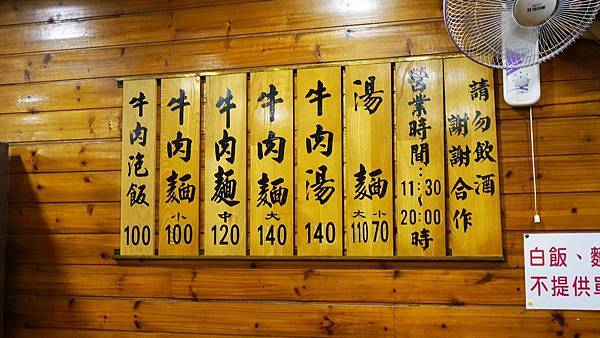 牛肉泡飯 100
牛肉麵 小 100
牛肉麵 中 120
牛肉麵 大 140
牛肉湯 140
湯麵 大 110 小 70
營業時間…11:30~20:00時
請勿飲酒
謝謝合作
白飯、麵
不提供